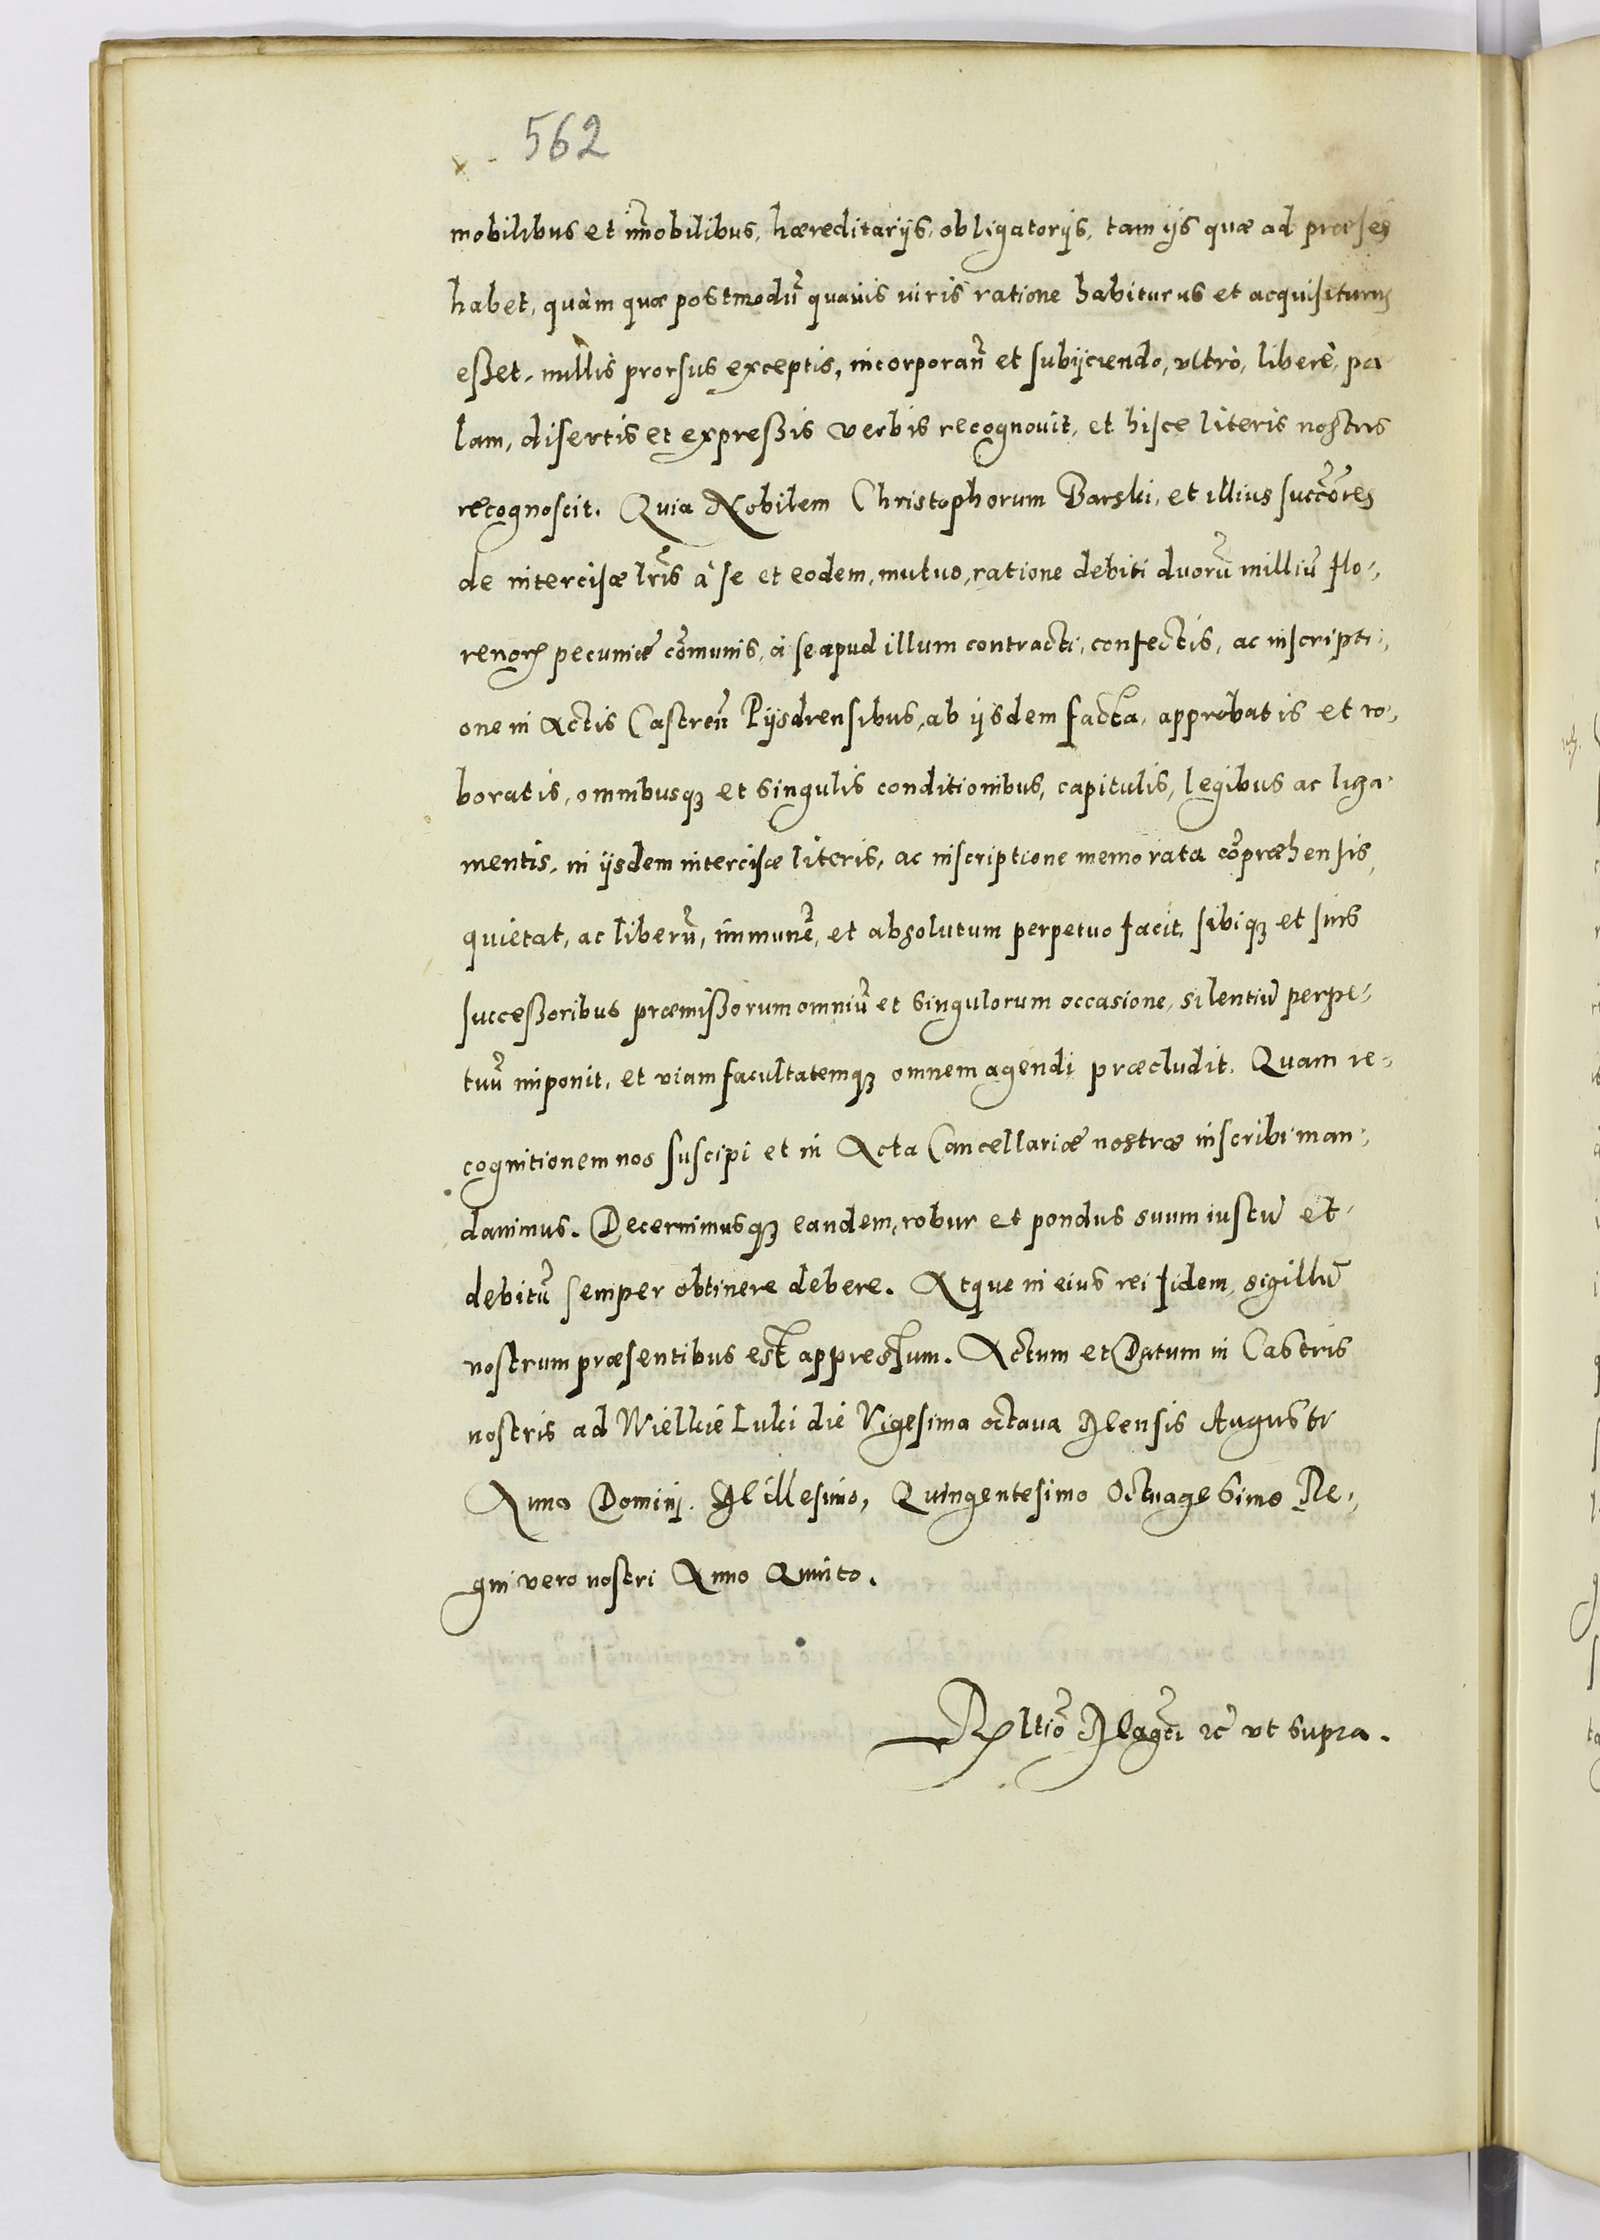 562
mobilibus et im̃obilibus, hæreditarijs, obligatorijs, tam ijs quæ ad præsens
habet, quàm quæ postmodũ quavis iuris ratione habiturus et acquisiturus
eßet, nullis prorsus exceptis, incorporañ et subijciendo, ultrò, liberè, pa
lam, disertis et expreßis verbis recognovit, et hisce literis nostris
recognoscit. Quia Nobilem Christophorum Barski, et illius succ̃ores
de intercisæ lr̃is à se et eodem, mutuo, ratione debiti duorũ milliũ flo-,
renorꝝ pecuniæ com̃unis, à se apud illum contracti, confectis, ac inscripti-,
one in Actis Castreñ Pijsdrensibus, ab ijsdem facta, approbatis et ro-,
boratis, omnibusqꝫ et singulis conditionibus, capitulis, legibus ac liga-
mentis, in ijsdem intercisæ literis, ac inscriptione memorata cõpræhensis,
quietat, ac liberũ, immunẽ, et absolutum perpetuo facit, sibiqꝫ et suis
succeßoribus præmißorum omniũ et singulorum occasione, silentiũ perpe-,
tuũ imponit, et viam facultatemqꝫ omnem agendi præcludit. Quam re-,
cognitionem nos suscipi et in Acta Cancellariæ nostræ inscribi man-,
davimus. Decernimusqꝫ eandem, robur et pondus suum iustũ et
debitũ semper obtinere debere. Atque in eius rei fidem, sigillũ
nostrum præsentibus est appressum. Actum et Datum in Castris
nostris ad Wielkie Luki die Vigesima octava Mensis Augusti
Anno Domini. Millesimo, Quingentesimo Octuagesimo Re-,
gni vero nostri Anno Quinto.
Rltiõ Magcĩ ꝛc ut supra.